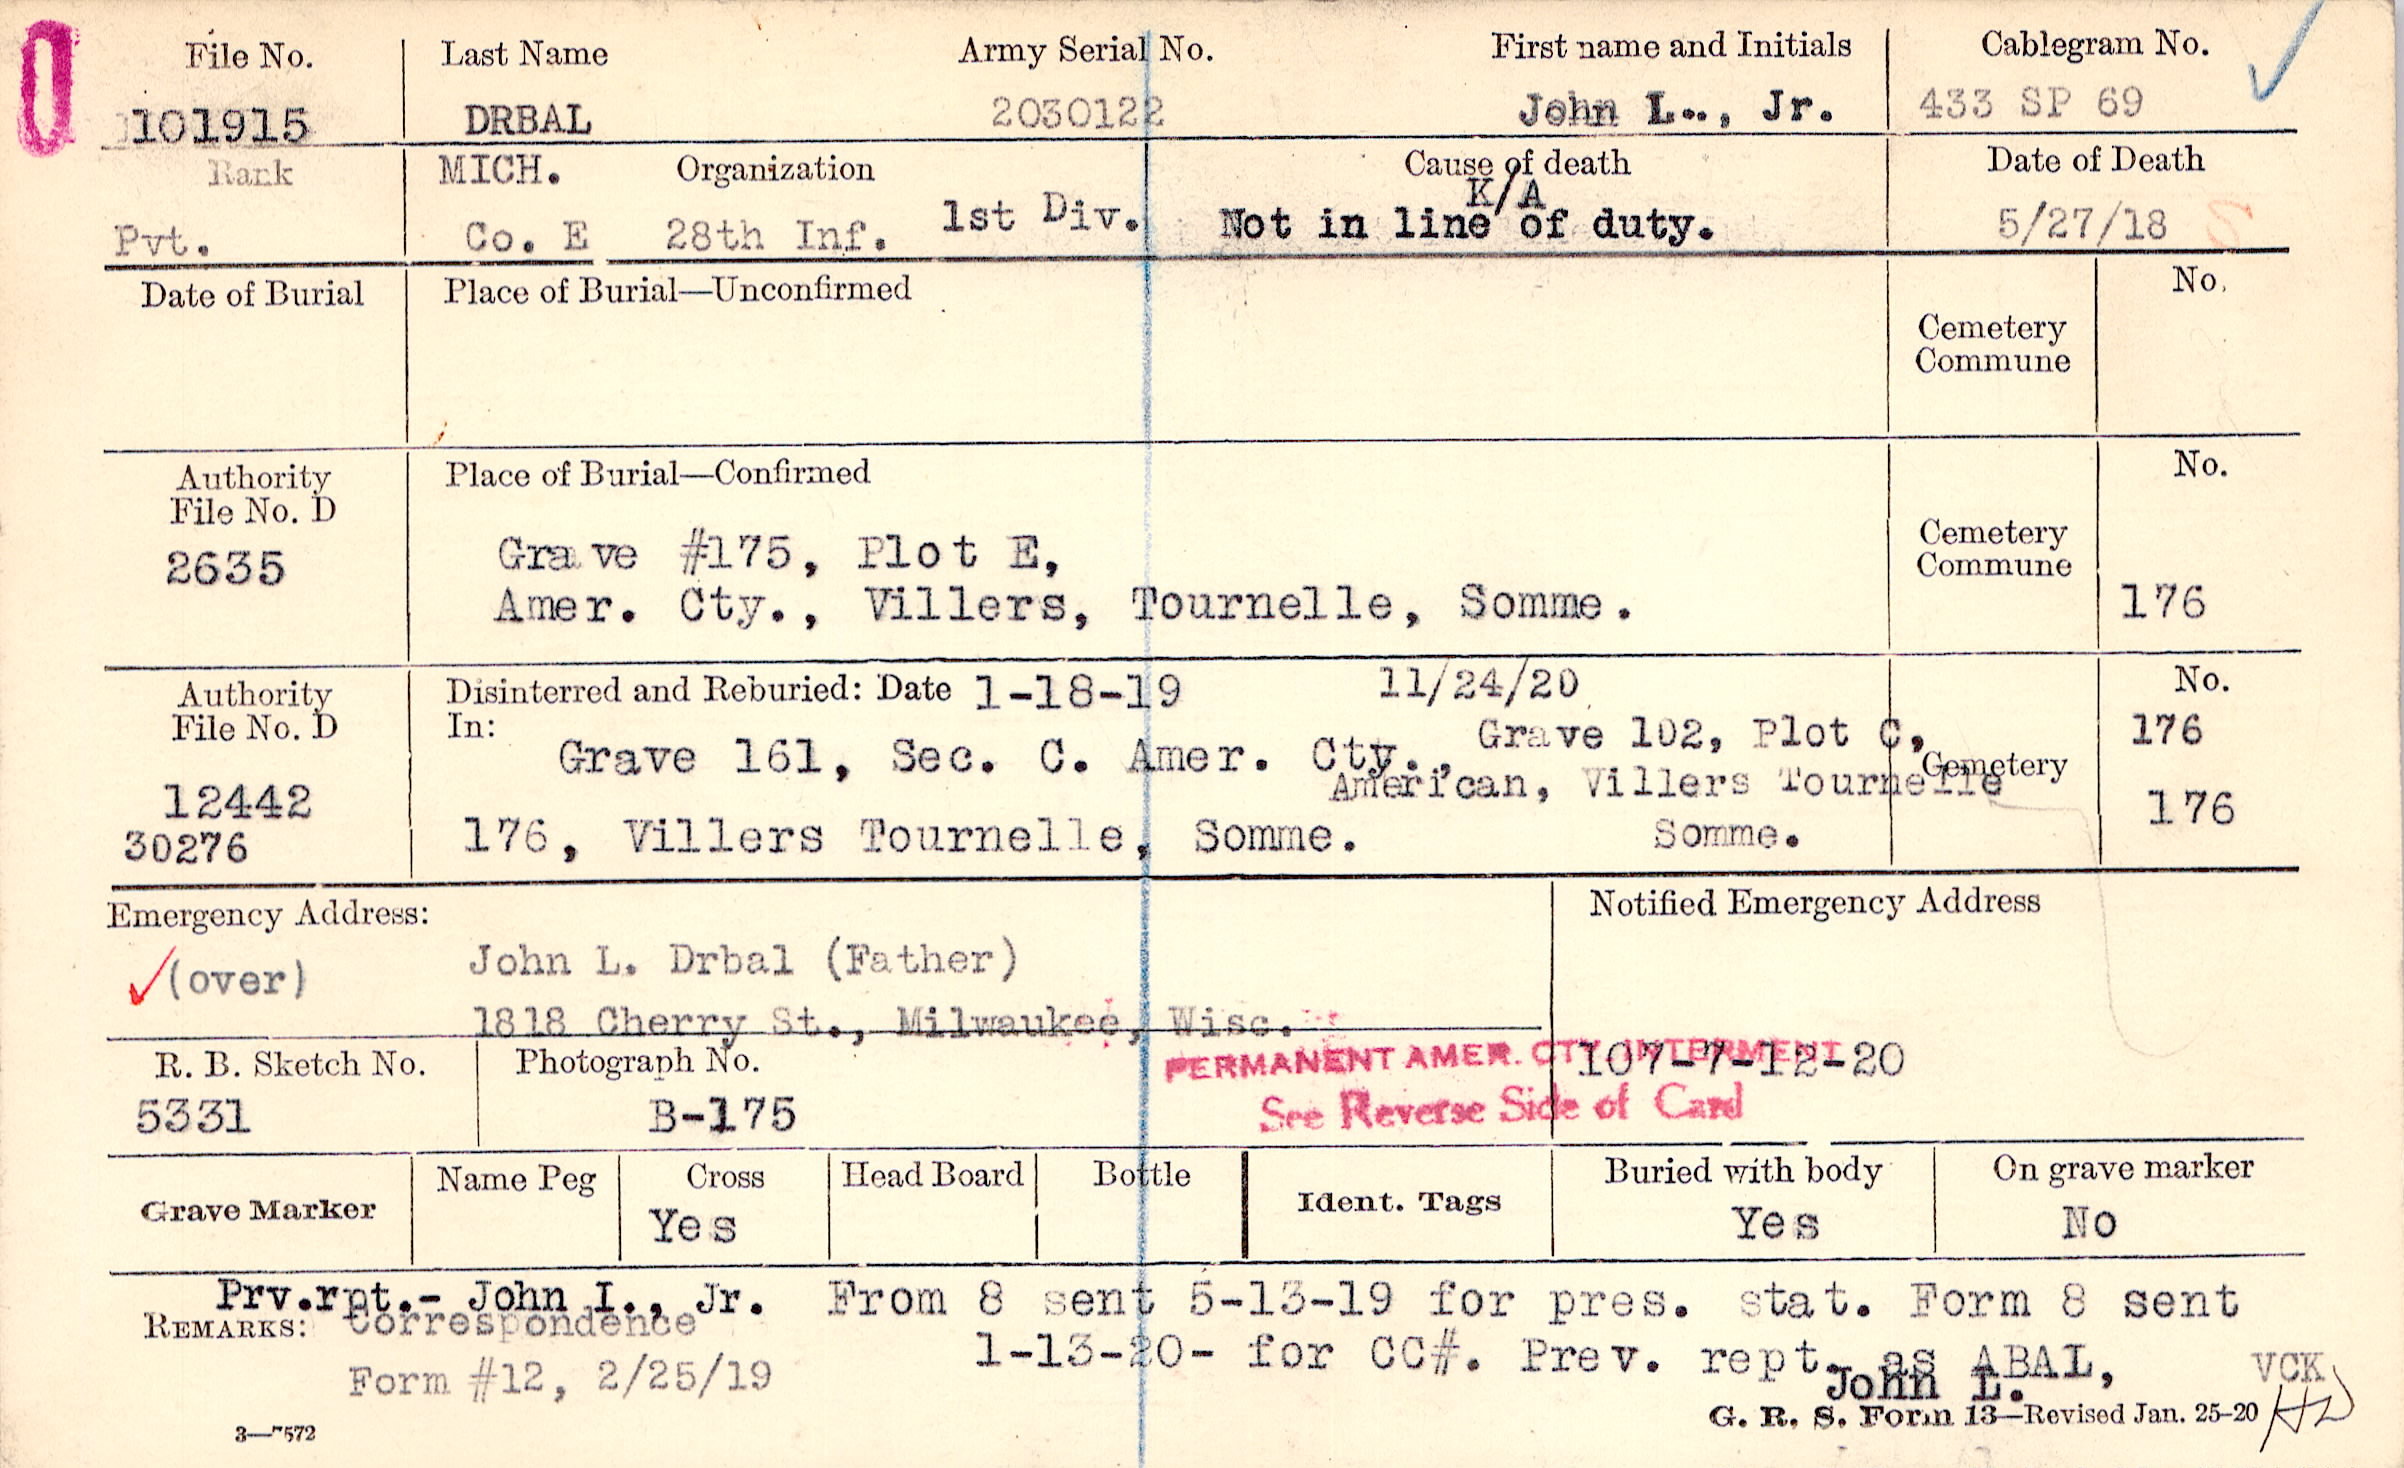 File No. Last Name Army Serial No. First name and Initials Cablegram No.
101915 DRBAL 2030122 John L., Jr. 433 SP 69
Rank MICH. Organization Cause of death Date of Death
K/A
Pvt. Co. E 28th Inf. 1st Div. Not in line of duty. 5/27/18
Date of Burial Place of Burial—Unconfirmed No.
Cemetery
Commune
Authority Place of Burial—Confirmed No.
File No. D
2635 Grave #175, Plot E, Cemetery
Commune
Amer. Cty., Villers, Tournelle, Somme. 176
Authority Disinterred and Reburied: Date 1-18-19 11/24/20 No.
File No. D In: Grave 102, Plot C, 176
Grave 161, Sec. C. Amer. Cty., Cemetery
American, Villers Tournelle
12442 176
30276 176, Villers Tournelle, Somme. Somme.
Emergency Address: Notified Emergency Address
(over) John L. Drbal (Father)
1818 Cherry St., Milwaukee, Wisc.
R. B. Sketch No. Photograph No. PERMANENT AMER. CTY. INTERMENT 107-7-12-20
5331 B-175 See Reverse Side of Card
Grave Marker Name Peg Cross Head Board Bottle Ident. Tags Buried with body On grave marker
Yes Yes No
Prv.rpt.- John I., Jr. From 8 sent 5-13-19 for pres. stat. Form 8 sent
REMARKS: Correspondence 1-13-20- for CC#. Prev. rept. as ABAL,
Form #12, 2/25/19 John L. VCK
G. R. S. Form 13—Revised Jan. 25-20
3—7572